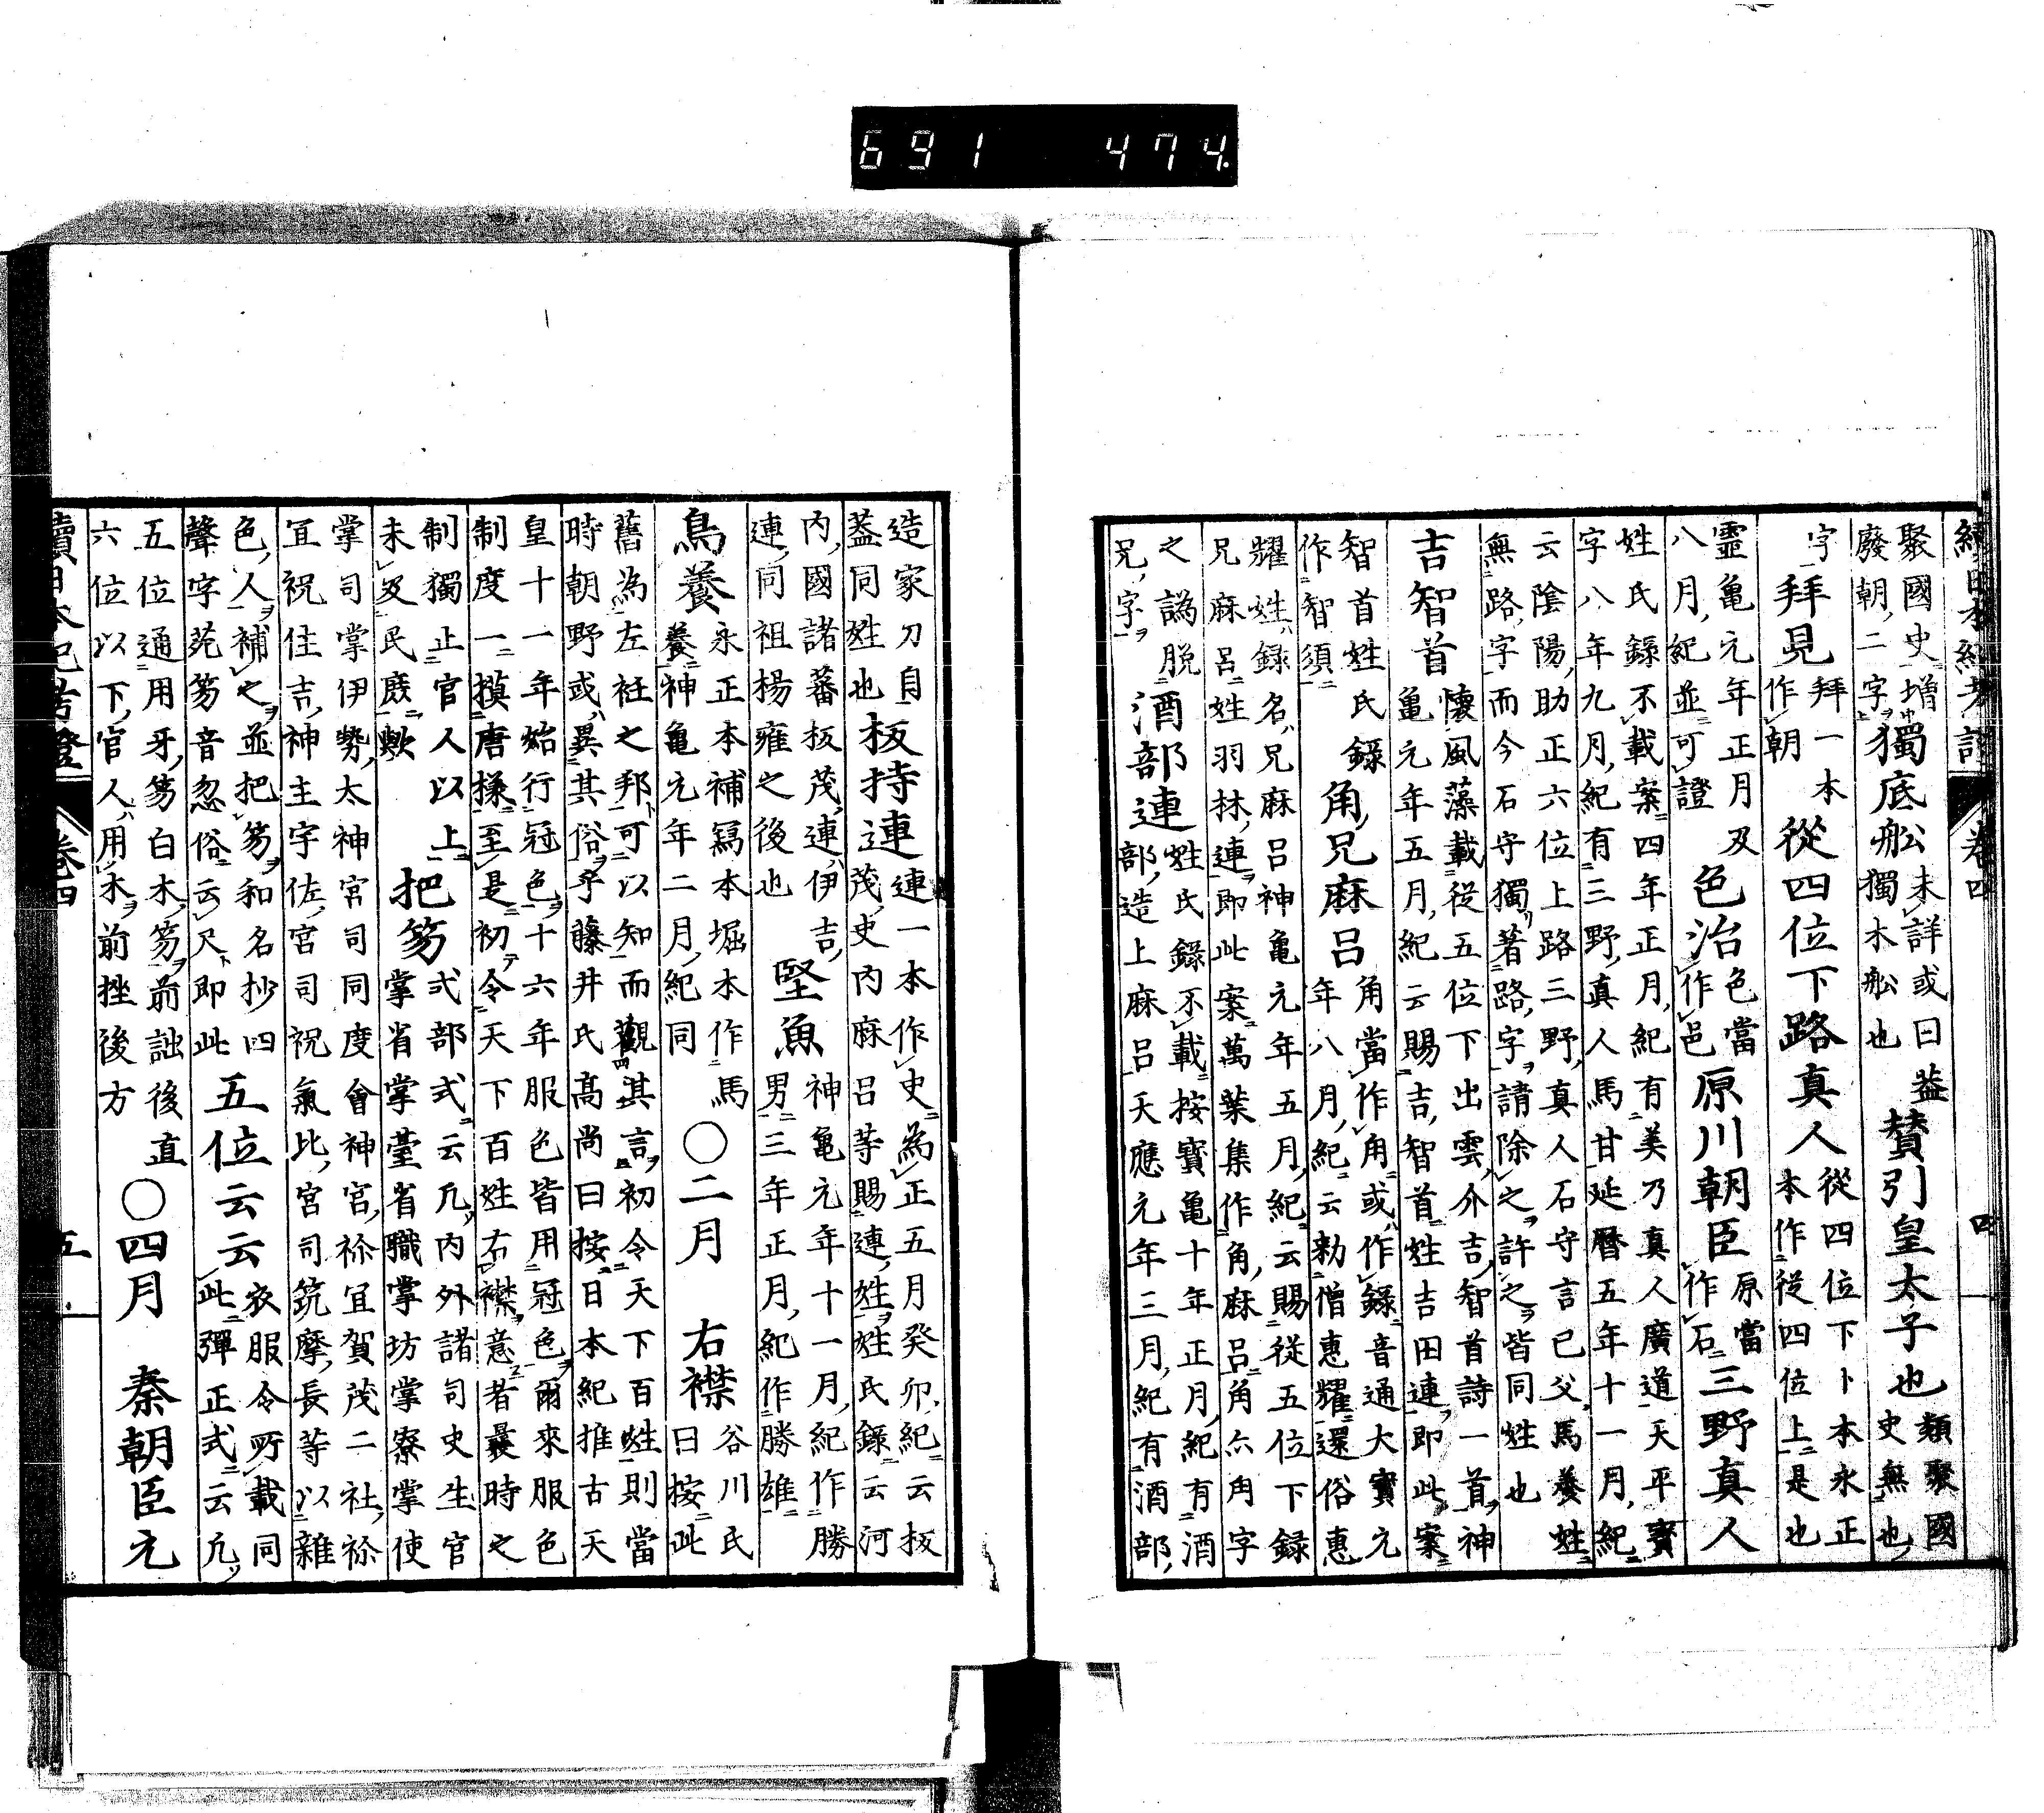 691 474.
續日本紀考證 卷四 四
聚國史増獨底舩未詳或曰葢贊引皇太子也類聚國
廢朝二字獨木舩也史無也
字拜見拜一本作朝從四位下路真人從四位下卜本永正本作從四位上是也
靈亀元年正月及八月紀並可證色治色當作邑原川朝臣原當作石三野真人
姓氏録不載案四年正月紀有美乃真人廣道天平寳
字八年九月紀有三野真人馬甘延暦五年十一月紀
云陰陽助正六位上路三野真人石守言已父馬養姓
無路字而今石守獨著路字請除之許之皆同姓也
吉智首懐風藻載從五位下出雲介吉智首詩一首神
亀元年五月紀云賜吉智首姓吉田連即此案
智首姓氏録作智須角兄麻呂角當作角或作録音通大寳元
年八月紀云勅僧惠耀還俗惠
耀姓録名兄麻呂神亀元年五月紀云賜從五位下録
兄麻呂姓羽林連即此案萬葉集作角麻呂角六角字
之譌脱酒部連姓氏録不載按寳亀十年正月紀有酒
兄字部造上麻呂天應元年三月紀有酒部
造家刀自板持連連一本作史為正五月癸卯紀云板
葢同姓也茂史内麻呂等賜連姓姓氏録云河
内國諸蕃板茂連伊吉堅魚神亀元年十一月紀作勝
連同祖楊雍之後也男三年正月紀作勝雄
鳥養永正本補冩本堀本作馬養神亀元年二月紀同〇二月 右襟谷川氏曰按此
舊為左衽之邦可以知而觀其言初令天下百姓則當
時朝野或異其俗乎藤井氏髙尚曰按日本紀推古天
皇十一年始行冠色十六年服色皆用冠色爾來服色
制度一摸唐様至是初令天下百姓右襟意者曩時之
制獨止官人以上把笏式部式云凡内外諸司史生官
未及民庶歟掌省掌臺省職掌坊掌寮掌使
掌司掌伊勢太神宮司同度會神宮祢宜賀茂二社祢
宜祝住吉神主字佐宮司祝氣比宮司筑摩長等以雜
色人補之並把笏和名抄四五位云云衣服令所載同
聲字苑笏音忽俗云尺即此此彈正式云凡
五位通用牙笏白木笏前詘後直〇四月 秦朝臣元
六位以下官人用木前挫後方
續日本紀考證 卷四 五